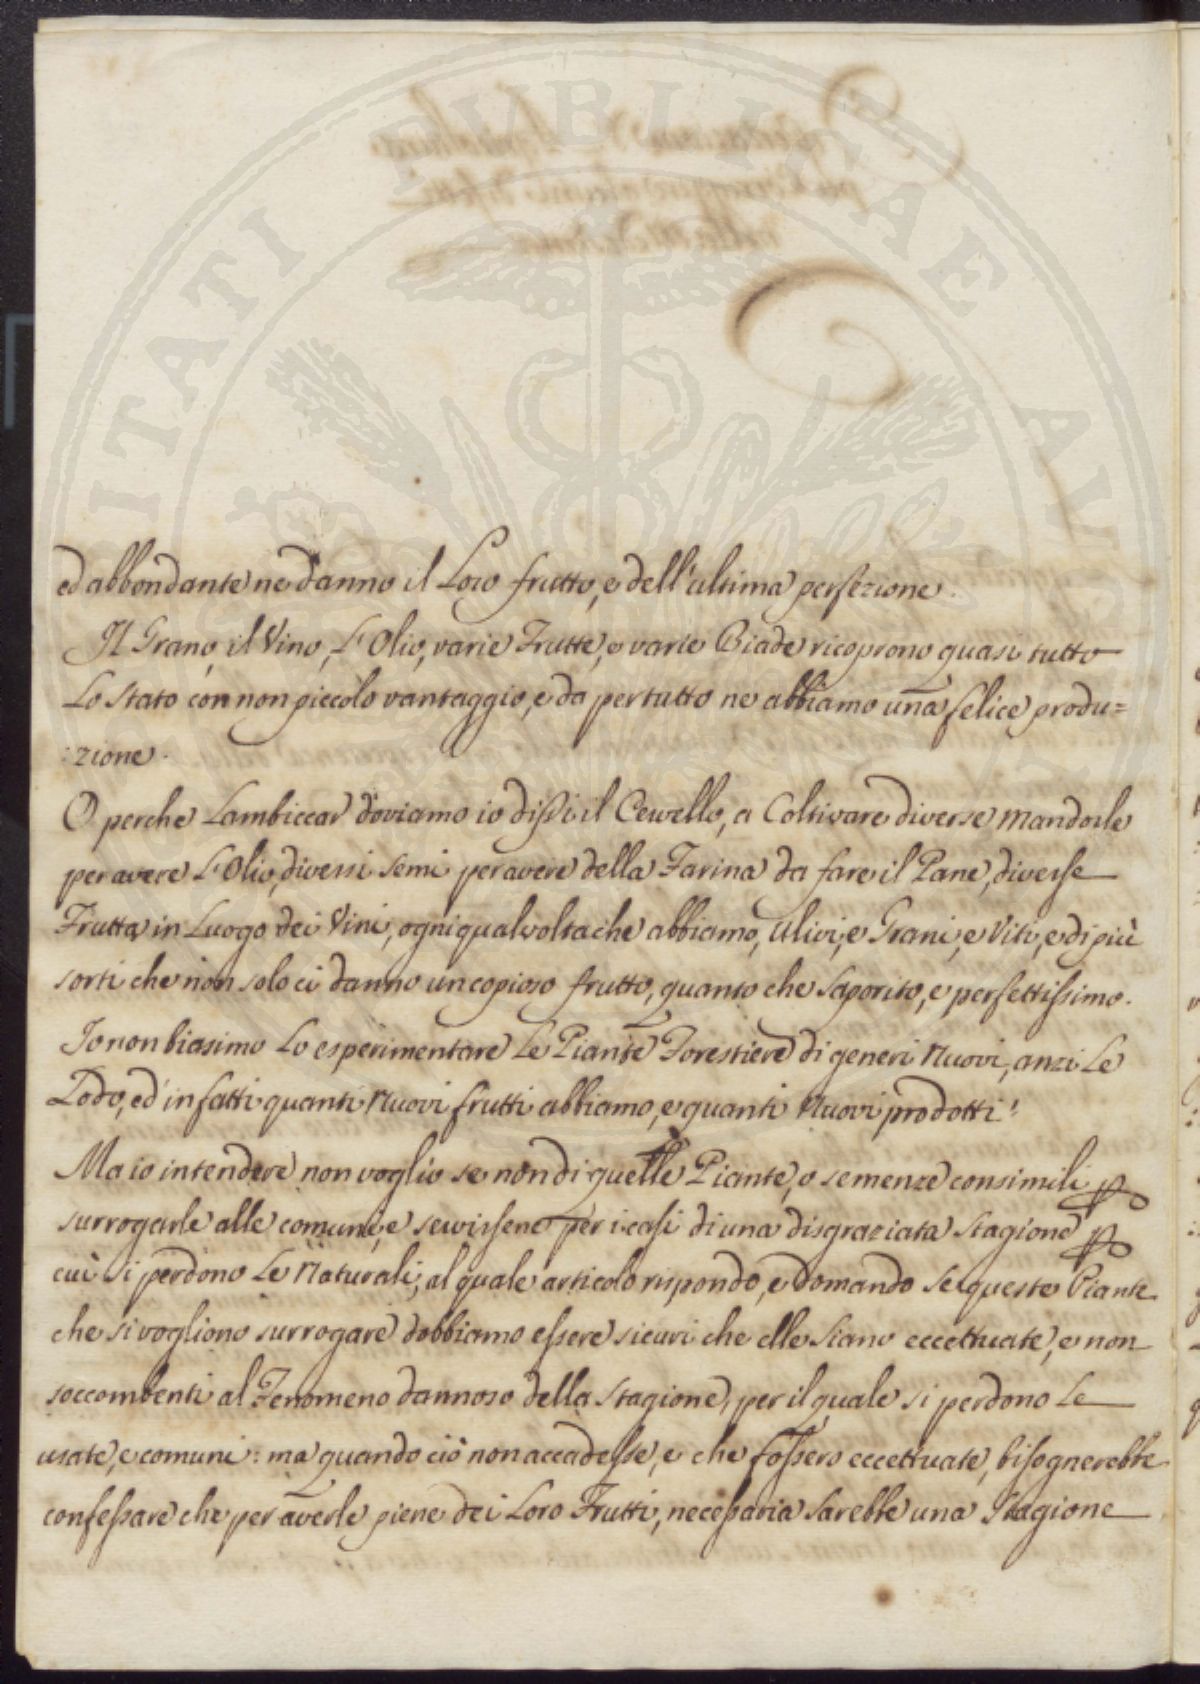 ed abbondante ne danno il Loro frutto, e dell'ultima perfezione.
Il Grano, il Vino, L'Olio, varie Frutte, e varie Biade ricoprono quasi tutto
Lo Stato con non piccolo vantaggio, e da per tutto ne abbiamo una felice produ=
:zione.
O perche Lambiccar doviamo io dissi il Cervello, a Coltivare diverse Mandorle
per avere L'Olio, diversi semi per avere della Farina da fare il Pane, diverse
Frutta in Luogo dei Vini, ogni qual volta che abbiamo, Ulivi, e Grani, e Viti, e di più
sorti che non solo ci danno un copioso frutto, quanto che saporito, e perfettissimo.
Io non biasimo Lo esperimentare Le Piante Forestiere di generi Nuovi, anzi Le
Lodo, ed infatti quanti Nuovi frutti abbiamo, e quanti Nuovi prodotti!
Ma io intendere non voglio se non di quelle Piante, o semenze consimili p
surrogarle alle comuni, e servirsene per i casi di una disgraziata stagione p
cui si perdono Le Naturali, al quale articolo rispondo, e domando se queste Piante
che si vogliono surrogare dobbiamo essere sicuri che elle siano eccettuate, e non
soccombenti al Fenomeno dannoso della stagione, per il quale si perdono Le
usate, e comuni: ma quando ciò non accadesse, e che fossero eccettuate, bisognerebbe
confessare che per averle piene dei Loro Frutti, necessaria sarebbe una Stagione
PUBLICAE